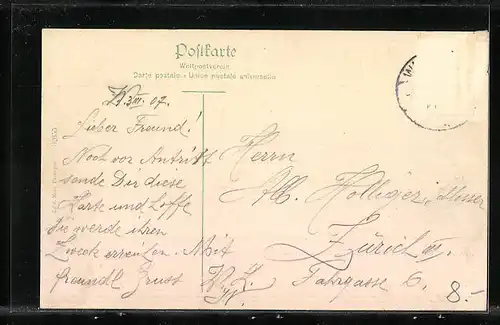 Postkarte
Weltpostverein
Carte postale - Union postale universelle
3/III. 07.
Lieber Freund!
Noch vor Antritt
sende Dir diese
Karte und hoffe
sie werde ihren
Zweck erreichen. Mit
freundl Gruss
Herrn
Alb. Holliger,
Zürich III.
Fahrgasse 6.
8.-